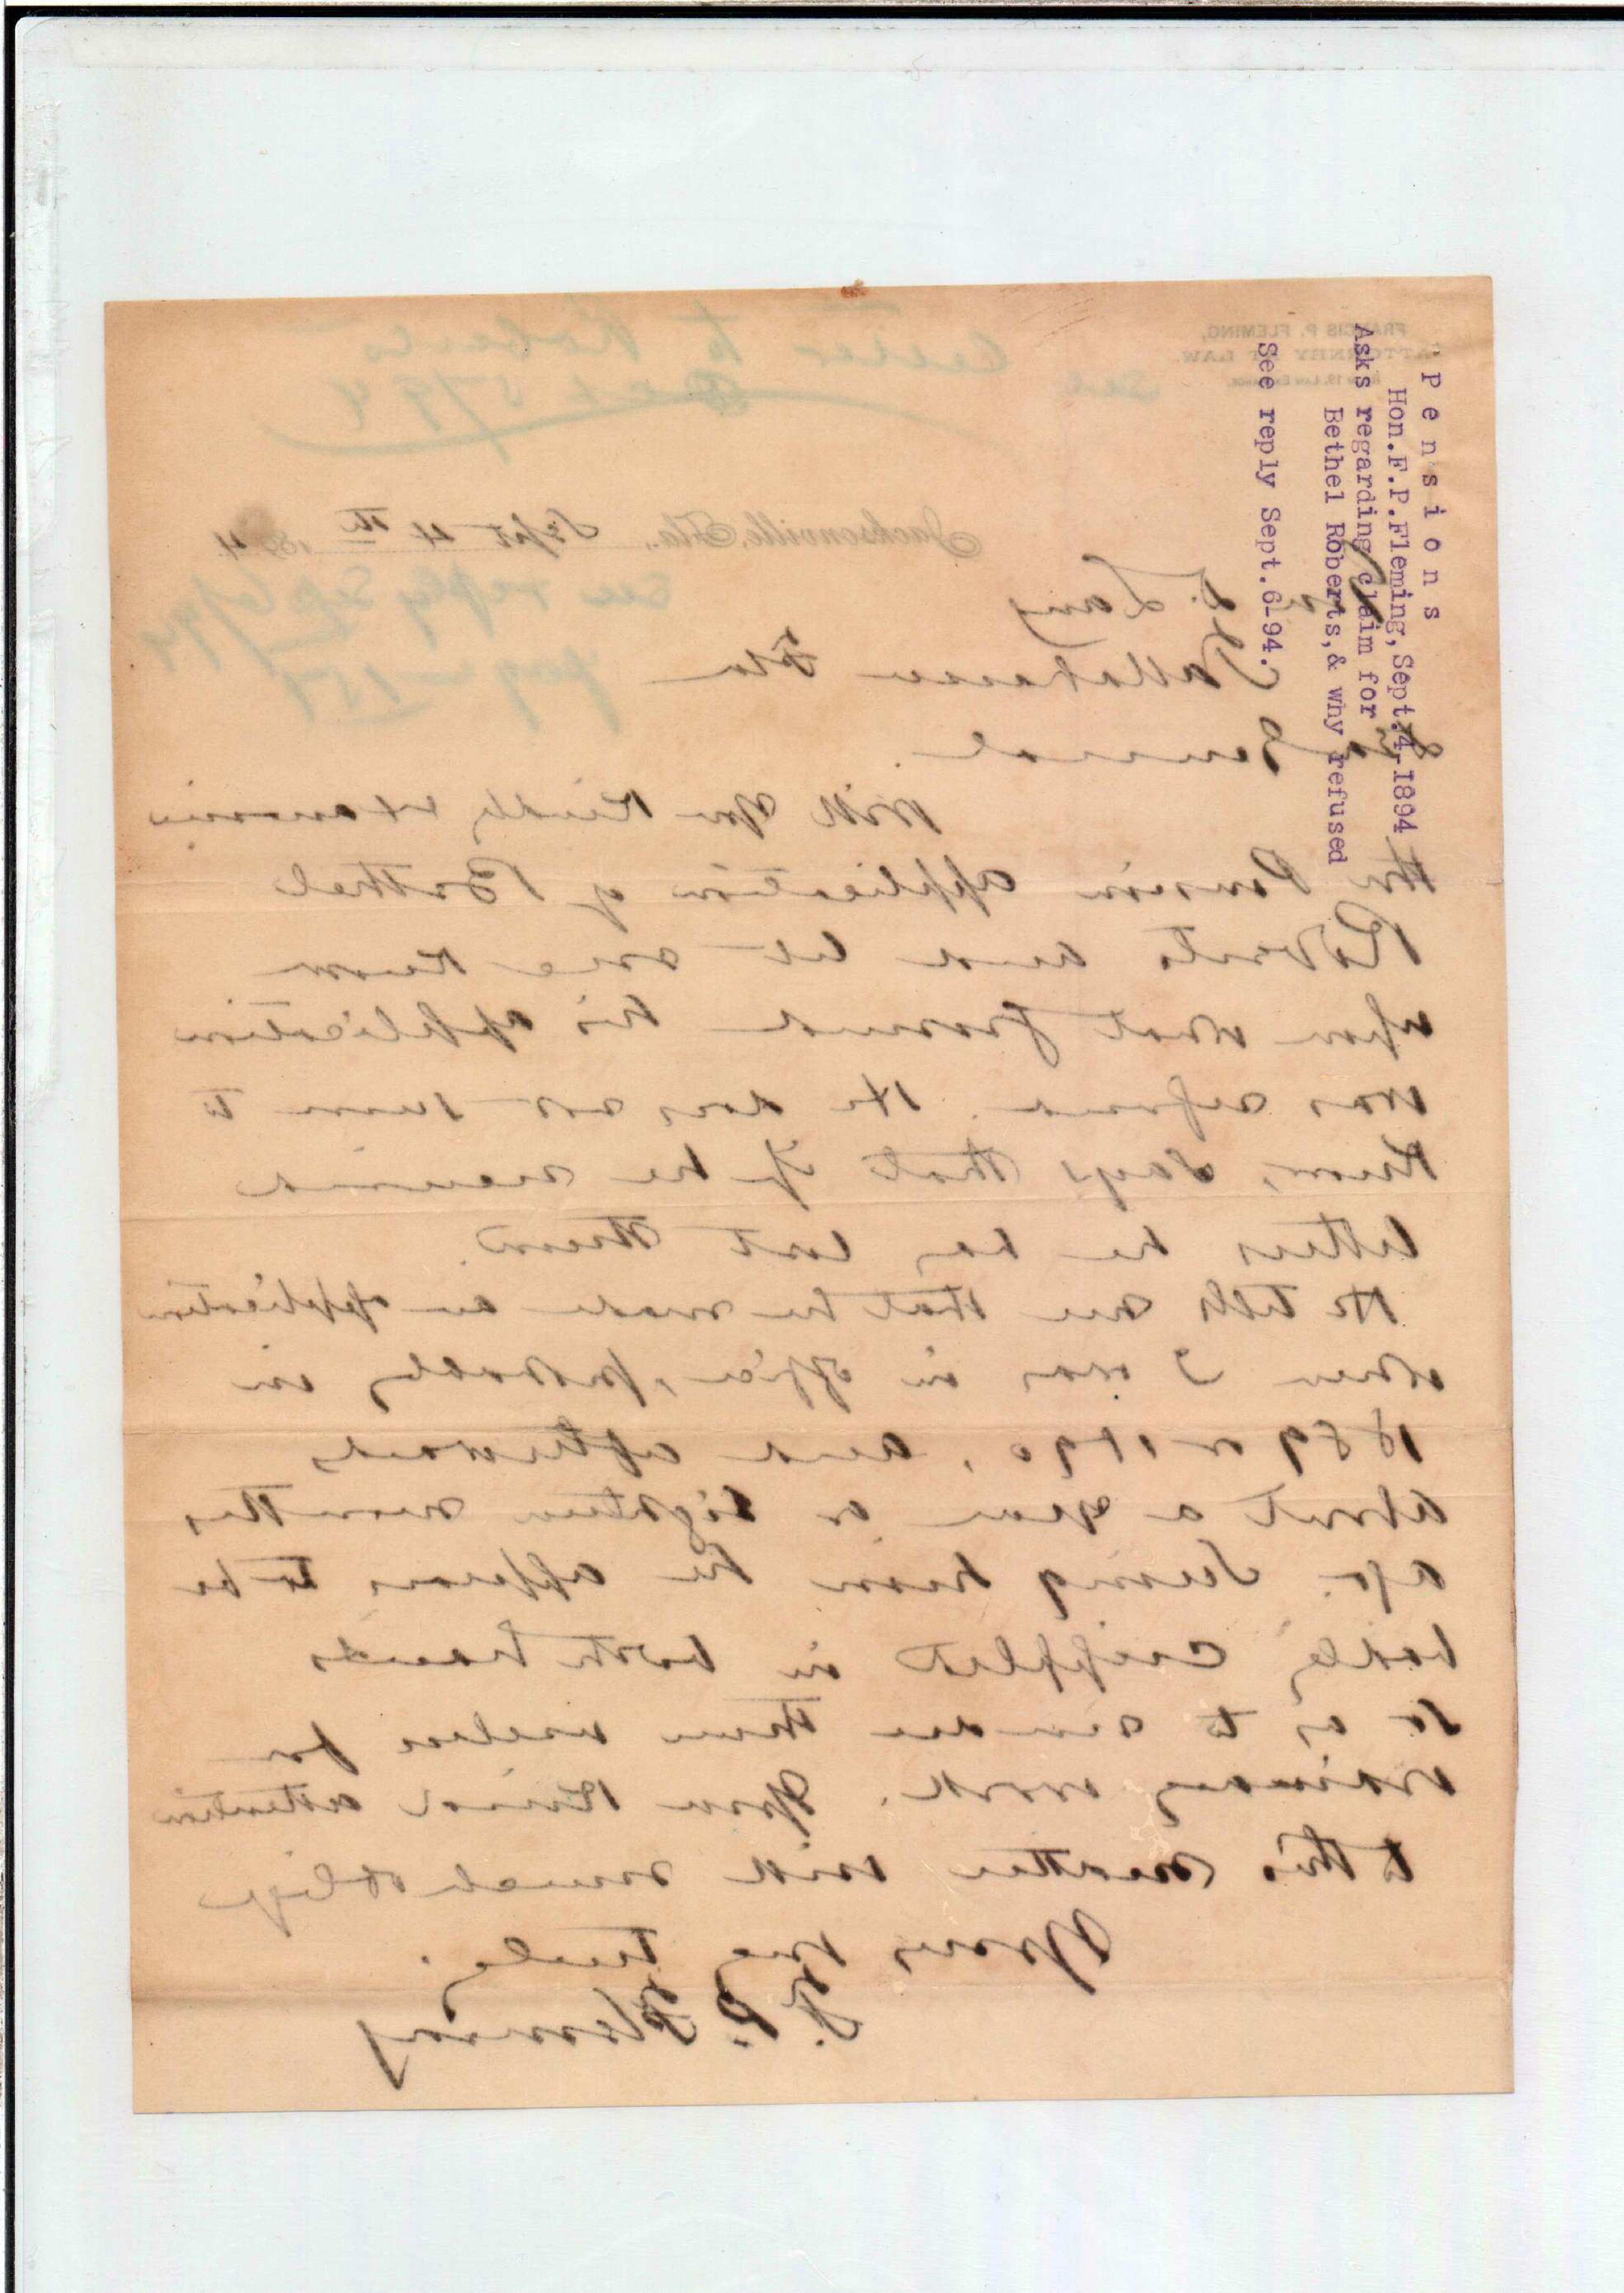 P e n s i o n s
Hon.F.P.Fleming,Sept.4-1894
Asks regarding claim for
Bethel Roberts,& why refused
See reply Sept.6-94.
FRANCIS P. FLEMING,
ATTORNEY AT LAW.
See Letter to Roberts
Oct 5/94
Jacksonville, Fla., Sept 4th 1894
See reply Sep 6/94
page 157
D. Lang
Tallahassee Fla
Dear General
Will you kindly examine
the Pension application of Bethel
Roberts and let me know
upon what ground his application
was refused. He does not seem to
know, says that if he received
letters he has lost them.
He tells me that he made an application
when I was in office, probably in
1889 or 1890, and afterwards
about a year or eighteen months
ago. Seeing him he appears to be
badly crippled in both hands
so as to render them useless for
ordinary work. Your kind attention
to this matter will much oblige
Yours very truly.
F. P. Fleming